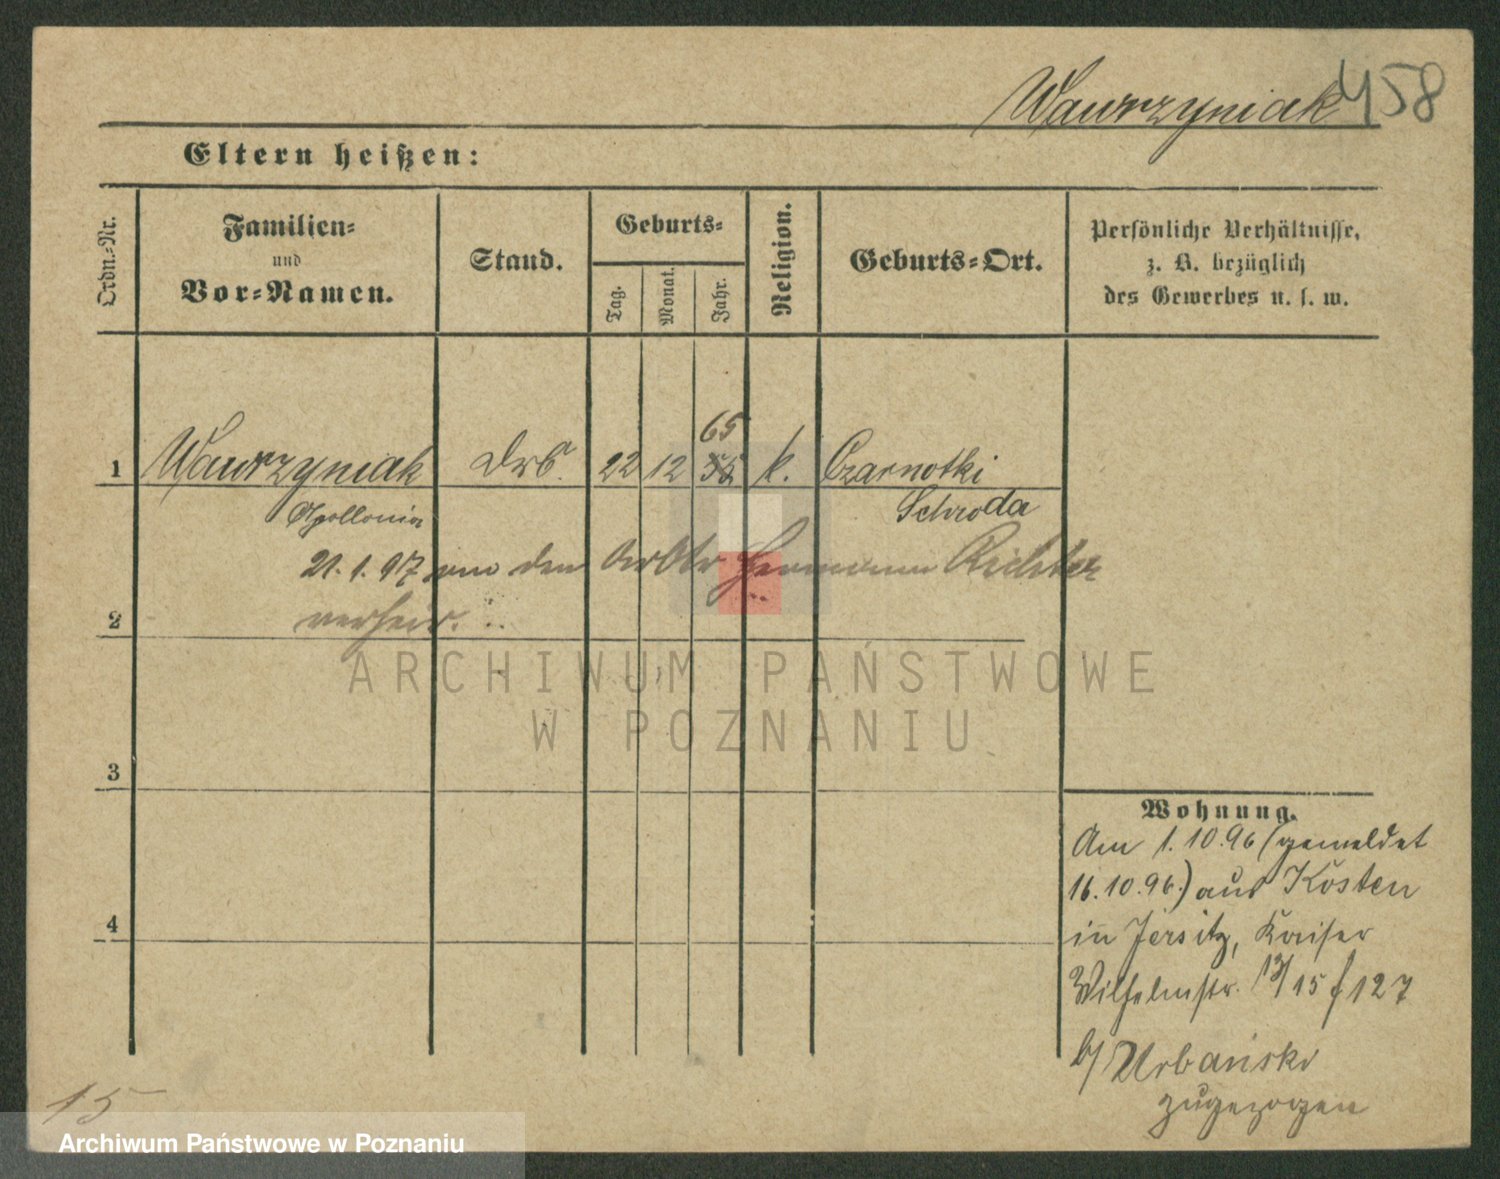 Wawrzyniak 458
Eltern heißen:
Ordn.-Nr.
Familien-
und
Vor-Namen.
Stand.
Geburts-
Tag.
Monat.
Jahr.
Religion.
Geburts-Ort.
Persönliche Verhältnisse,
z. B. bezüglich
des Gewerbes u. s. w.
65
1 Wawrzyniak 22 12 k. Czarnotki
Apollonia Schroda
21.1.97 den Hermann Richter
2 verheir.
3
Wohnung.
Am 1.10.96 (gemeldet
16.10.96.) aus Kosten
4
in Jersitz, Kaiser
Wilhelmstr. 13/15 f 127
b/ Urbański
zugezogen
15
ARCHIWUM PAŃSTWOWE
W POZNANIU
Archiwum Państwowe w Poznaniu